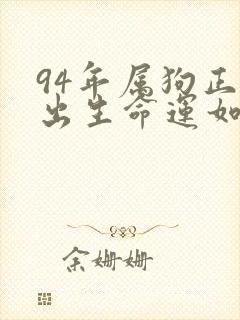 94年属狗正
出生命运如
余姗姗